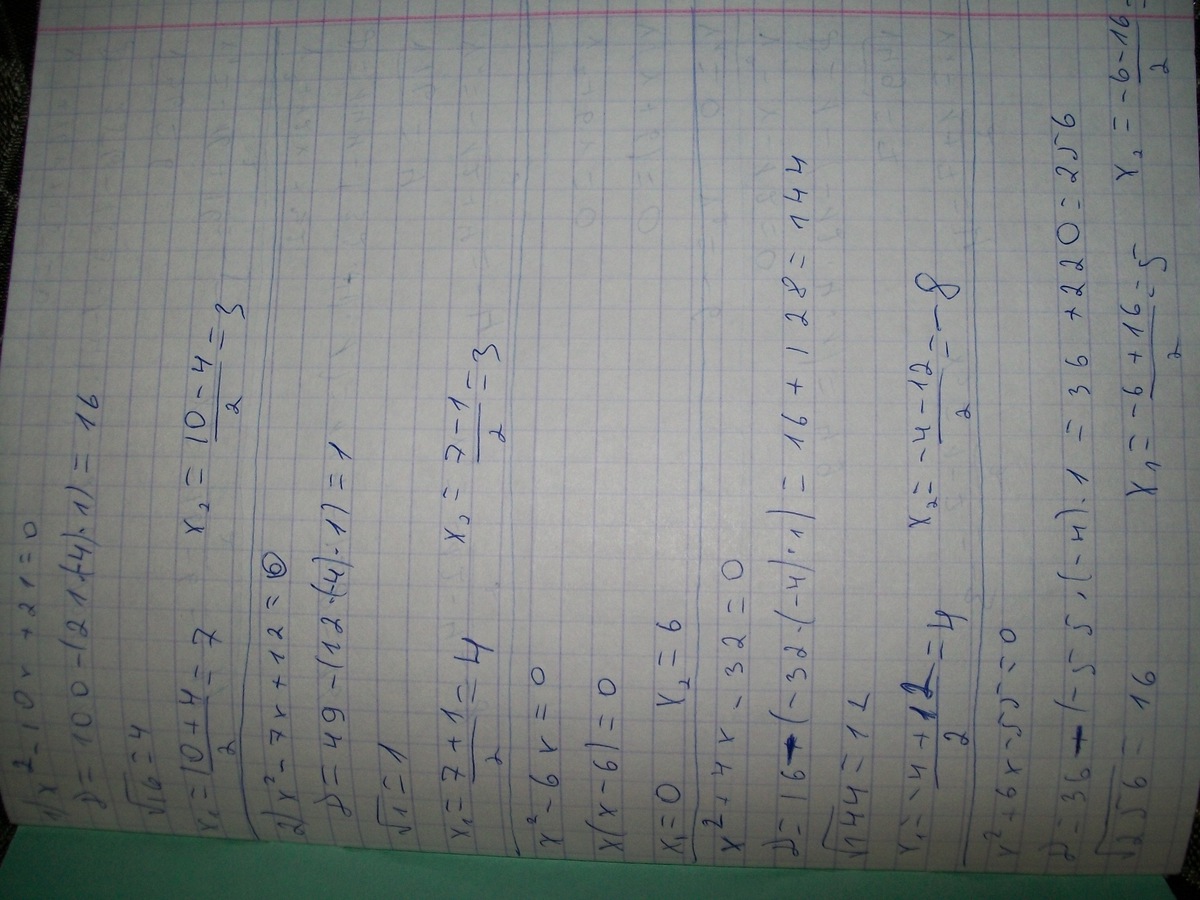 1) x² - 10x + 21 = 0
D = 100 - (21·(-4)·1) = 16
√16 = 4
x₁ = (10+4)/2 = 7 x₂ = (10-4)/2 = 3
2) x² - 7x + 12 = 0
D = 49 - (12·(-4)·1) = 1
√1 = 1
x₁ = (7+1)/2 = 4 x₂ = (7-1)/2 = 3
x² - 6x = 0
x(x-6) = 0
x₁ = 0 x₂ = 6
x² + 4x - 32 = 0
D = 16 + (-32·(-4)·1) = 16 + 128 = 144
√144 = 12
x₁ = (-4+12)/2 = 4 x₂ = (-4-12)/2 = -8
x² + 6x - 55 = 0
D = 36 + (-55·(-4)·1 = 36 + 220 = 256
√256 = 16 x₁ = (-6+16)/2 = 5 x₂ = (-6-16)/2 =